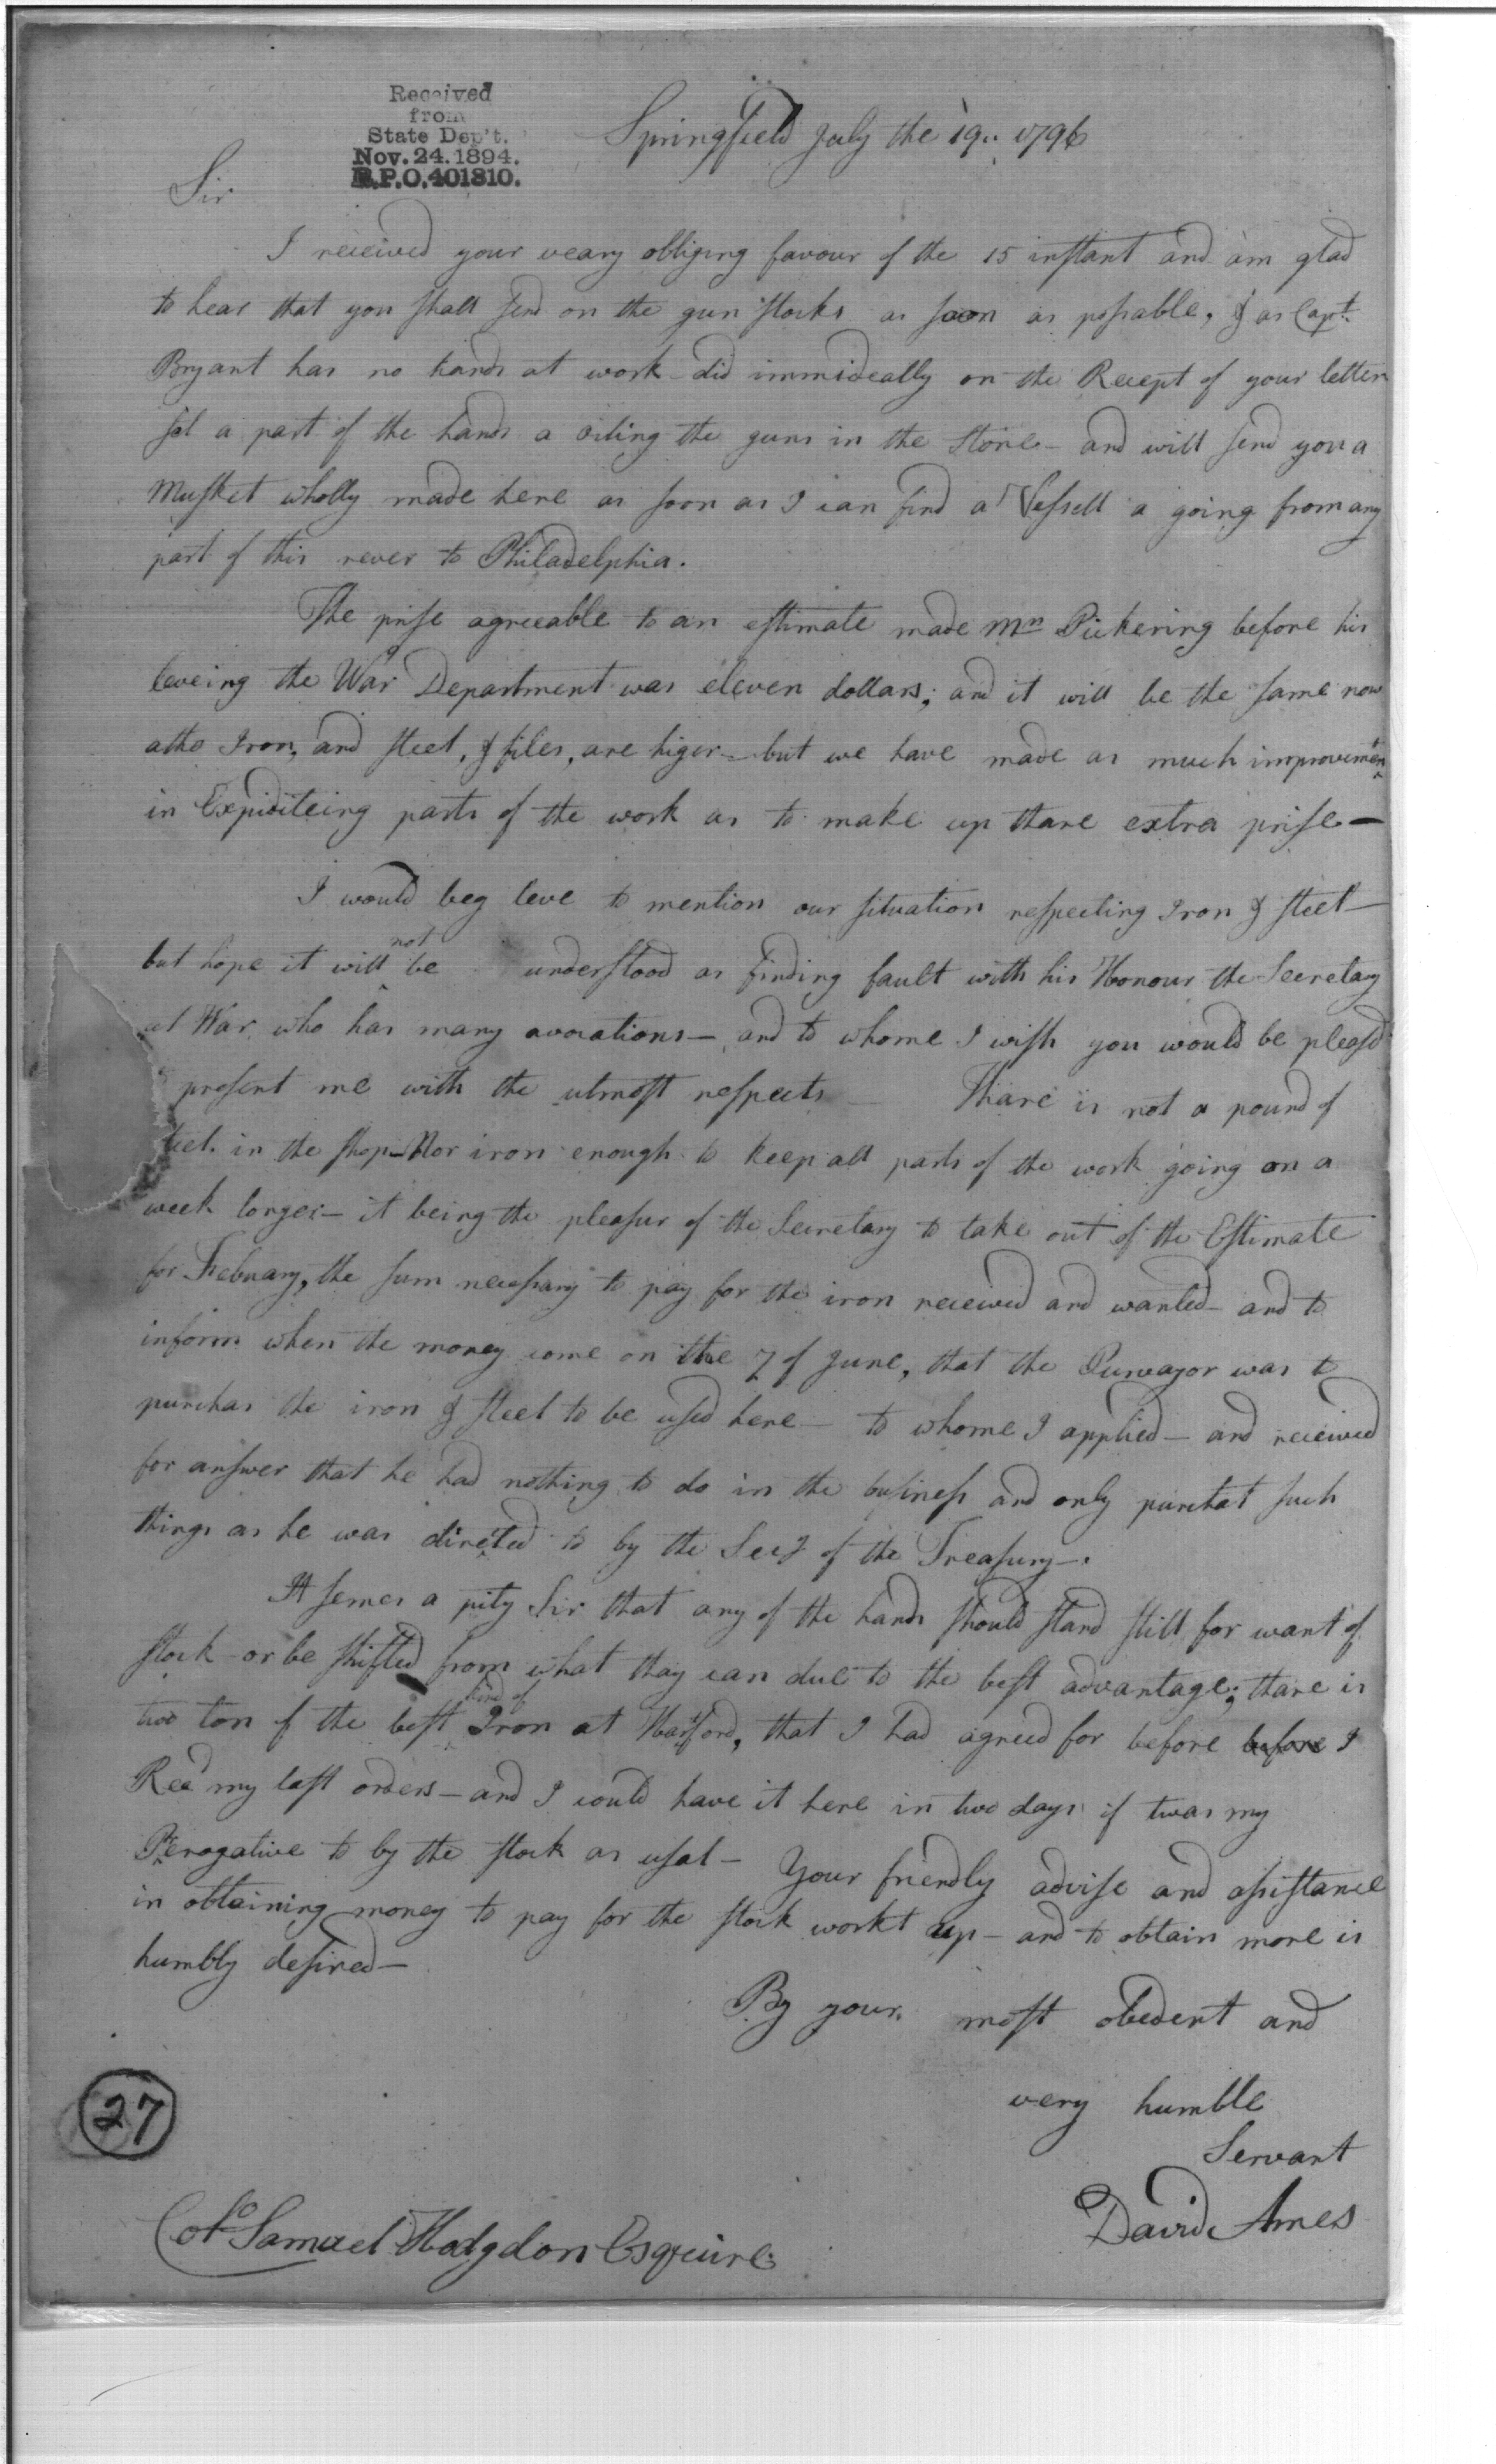 Received
from
State Dep't.
Nov. 24. 1894.
R.P.O. 401810.
Springfield July the 19.. 1796
Sir
I received your veary obliging favour of the 15 instant and am glad
to hear that you shall send on the gun stocks as soon as possable, & as Capt.
Bryant has no hands at work did immideatly on the Recept of your letter
set a part of the hands a oiling the guns in the Store - and will send you a
Musket wholly made here as soon as I can find a Vessell a going from any
part of this rever to Philadelphia.
The prise agreeable to an estimate made Mr. Pickering before his
leveing the War Department was eleven dollars; and it will be the same now
altho Iron, and steel, & files, are higer - but we have made as much improvement
in Expiditeing parts of the work as to make up thare extra prise -
I would beg leve to mention our situation respecting Iron & steel -
but hope it will not be understood as finding fault with his Honour the Secretay
at War who has many avocations - and to whome I wish you would be pleasd
present me with the utmost respects - Thare is not a pound of
teel in the shop - Nor iron enough to keep all parts of the work going on a
week longer - it being the pleasur of the Secretary to take out of the Estimate
for February, the sum necessary to pay for the iron received and wanted - and to
inform when the money come on the 7 of June, that the Purvayor was to
purchas the iron & steel to be used here - to whome I applied - and received
for answer that he had nothing to do in the business and only purchat such
things as he was directed to by the Secy of the Treasury -.
It semes a pity Sir that any of the hands should stand still for want of
stock - or be shifted from what thay can due to the best advantage; thare is
two ton of the best kind of Iron at Hartford, that I had agreed for before before I
Recd my last orders - and I could have it here in two days if twas my
Perogative to by the stock as usal - Your friendly advise and assistance
in obtaining money to pay for the stock workt up - and to obtain more is
humbly desired -
By your most obedent and
very humble
Servant
David Ames
27
Colo Samuel Hodgdon Esquire.